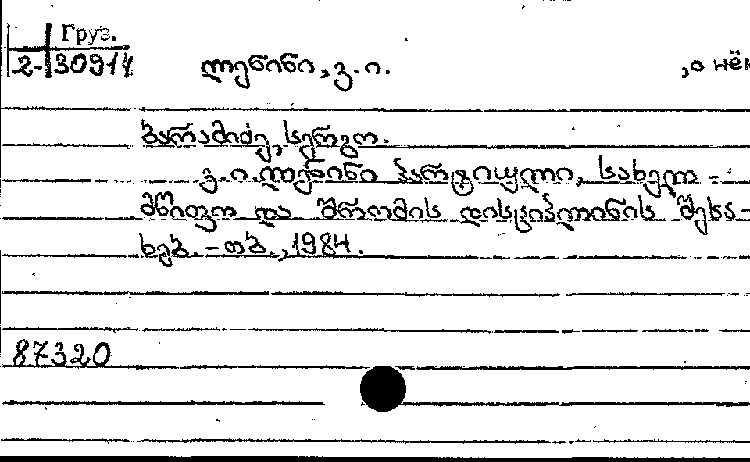 Груз.
2-30914
ლენინი, ვ. ი.
, о нём
ბარამიძე, სერგო.
ვ. ი. ლენინი პარტიული, სახელ-
მწიფო და შრომის დისციპლინის შესა-
ხებ. - თბ., 1984.
87320